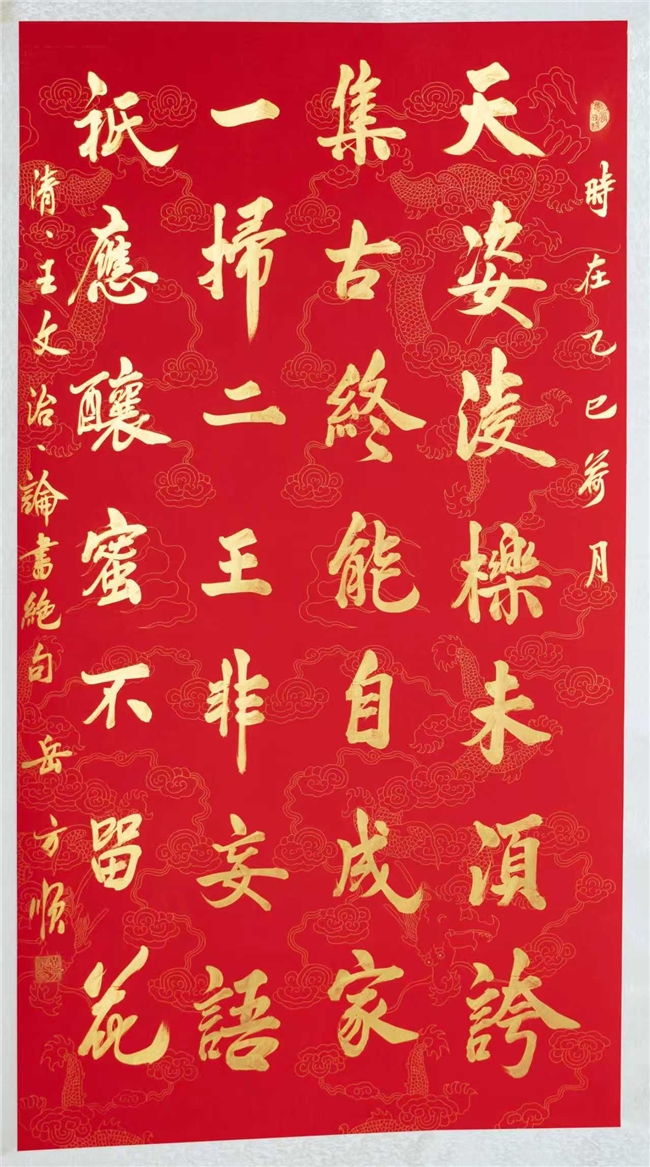 時在乙巳荷月
天姿淩櫟未湏誇
集古終能自成家
一掃二王非妄語
祇應釀蜜不留花
清、王文治、論書絕句 岳方順